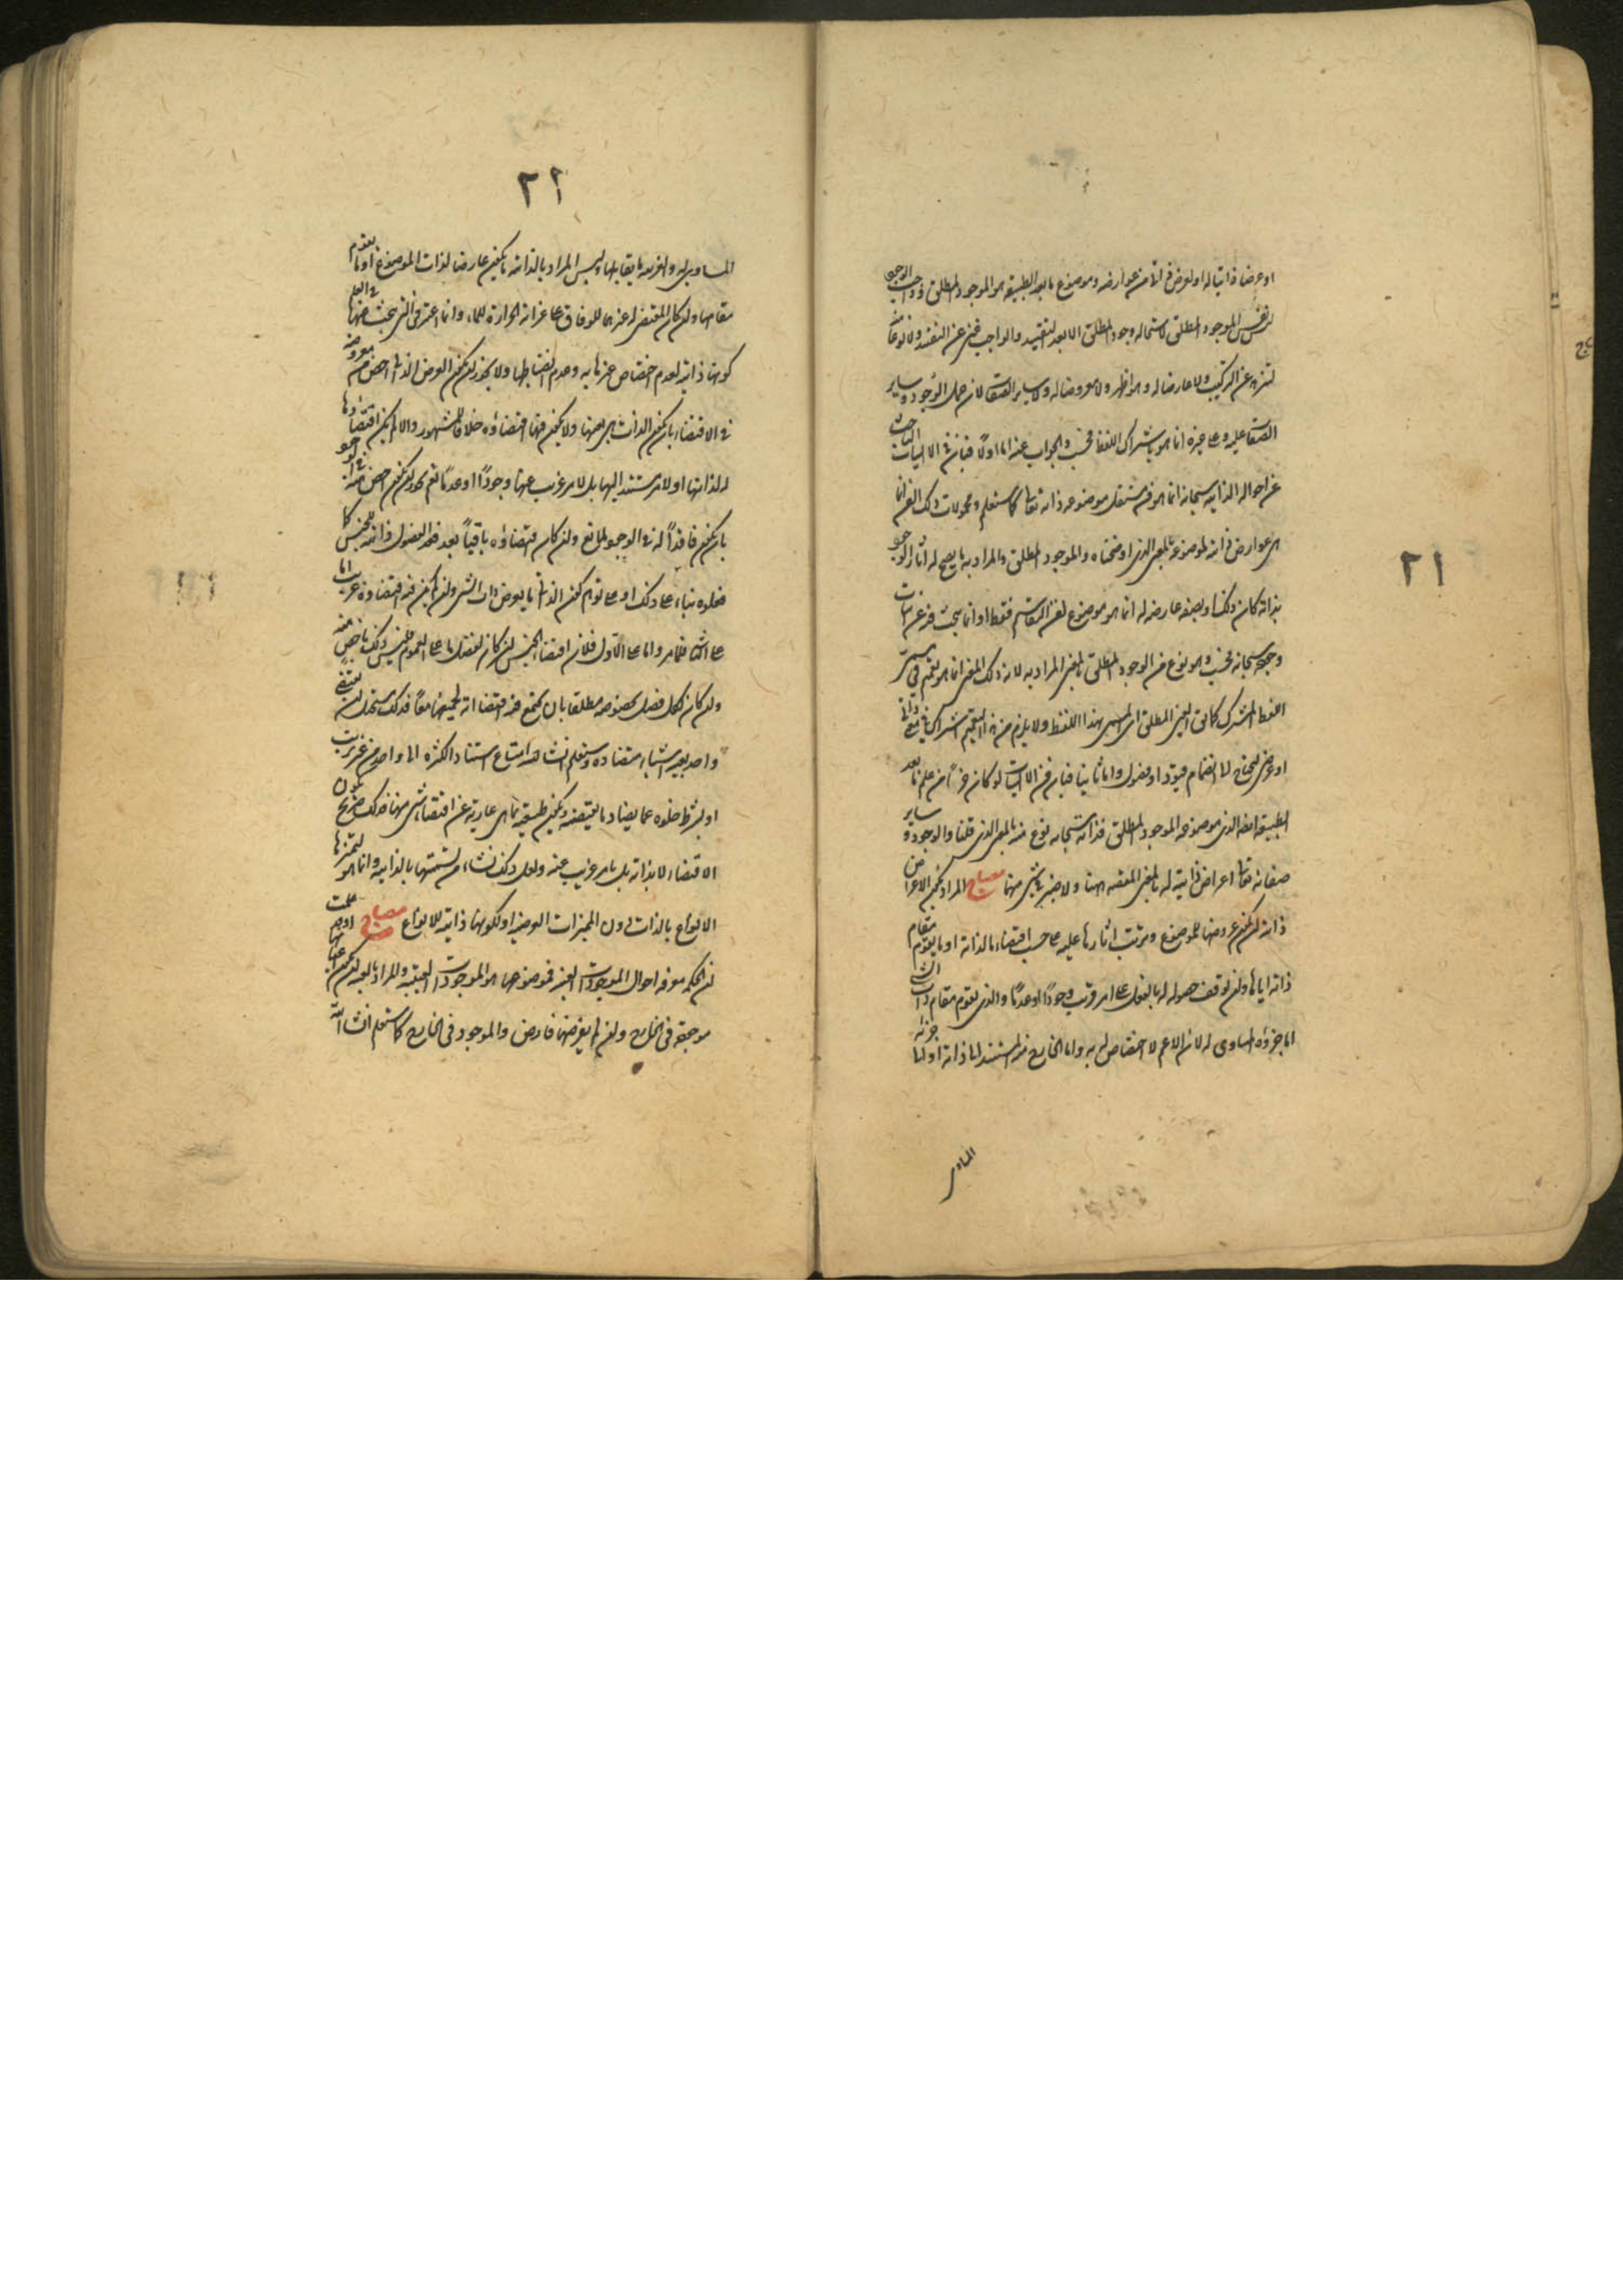 ٢١
او عرضا ذاتيا له او لعرض ذاتى من عوارضه وموضوع ما بعد الطبيعه هو الموجود المطلق وذو الواجب
ليس نفس الموجود المطلق لاستحاله وجود المطلق الا بعد التقييد والواجب غنى عن التقييد ولا نوعا منه
لتنزهه عن التركيب ولا عارضا له وهو اظهر ولا معروضا له ولا ساير الصفات لان حمل الوجود وساير
الصفات عليه وعلى غيره انما هو باشتراك اللفظ فحسب والجواب عنه اما اولا فبان فى الالهيات الباحث
عن احواله الذاتيه سبحانه انما هو فن مستقل موضوعه ذاته تعالى كما ستعلم ومحمولات ذلك الفن انما
هى عوارض ذاتيه لموضوعه بالمعنى الذى اوضحناه والموجود المطلق والمراد به ما يصح له آثار الوجود
بذاته كان ذلك او بصفه عارضه له انما هو موضوع لفن التقاسيم فقط او انما يبحث فيه عن اثبات
وجوده سبحانه فحسب وهو نوع من الوجود المطلق بالمعنى المراد به لان ذلك المعنى انما هو يعم فى
اللفظ المشترك كما فى العين المطلق اى المسمى بهذا اللفظ ولا يلزم من هذا التعميم اشتراك فى معنى ذاتى
او عرضى ليحتاج الى انضمام قيود او فصول واما ثانيا فبان فن الالهيات لو كان جزءا من علم ما بعد
الطبيعه ايضا الذى موضوعه الموجود المطلق فذاته سبحانه نوع منه بالمعنى الذى قلنا والوجود وساير
صفاته تعالى اعراض ذاتيه له بالمعنى المقصود هنا ولا ضير فى شىء منها مصباح المراد بكون الاعراض
ذاتيه ان يكون عروضها للموضوع وترتب آثارها عليه على حسب اقتضاء بالذات او ما يقوم مقام
ذاته اياها وان توقف حصوله له بالفعل على امر غريب وجودا او عدما والذى يقوم مقام ذات الشىء
اما جزؤه المساوى له لان الاعم لا اختصاص له به واما الخارج منه المستند الى ذاته او الى جزئه
المساوى
٢٢
المساوى له والغريب ما يقابلها وليس المراد بالذاتيه ما يكون عارضا لذات الموضوع او ما يقوم
مقامها وان كان المقتضى له غيرها للوفاق على غرابة الحرارة للماء وانما اعتبر فى التى يبحث عنها فى العلم
كونها ذاتيه لعدم اختصاص غيرها به وعدم انضباطها ولا يجوز ان يكون العرض الذاتى اخص من معروضه
فى الاقتضاء بان يكون الذات هى هى ولا يكون فيها اقتضاؤه خلافا للمشهور والا لم يكن اقتضاؤها
له لذاتها او لامر مستند اليها بل لامر غريب عنها وجودا او عدما نعم يجوز ان يكون اخص منه فى الوجود
بان يكون فاقدا له فى الوجود لمانع وان كان اقتضاؤه باقيا بعد فعد الفصول ذاتيه للجنس كما
فعلوه بناء على ذلك او على توهم كون الذاتى ما يعرض ذات الشىء وان لم يكن فيه اقتضاؤه غريب اما
على الثانى فظاهر واما على الاول فلان اقتضاء الجنس ان كان لفصل ما على العموم فليس ذلك باخص منه
وان كان لكل فصل بخصوصه مطلقا بان يجتمع فيه اقتضاءاته لجميعها معا فذلك مستحيل ان يقتضى
واحد بعينه اشياء متضاده وستعلم انشا الله امتناع استناد الكثره الى واحد من غير ترتيب
او بشرط خلوه عما يضاد ما يقتضيه ويكون طبيعه ما هى عارية عن اقتضاء شىء منها فذلك صريح بكون
الاقتضاء لا بذاته بل بامر غريب عنه ولعل ذلك نشاء من تسميتها بالذاتيه وانما هو لتميزها
الانواع بالذات دون المميزات العرضيه او لكونها ذاتيه للانواع مصباح اذ قد علمت
ان الحكمه معرفه احوال الموجودات العينيه فموضوعها هو الموجودات العينيه والمراد بالعينيه ان يكون اعيانها
موجوده فى الخارج وان لم يفرضها فارض والموجود فى الخارج كما ستعلم انشا الله